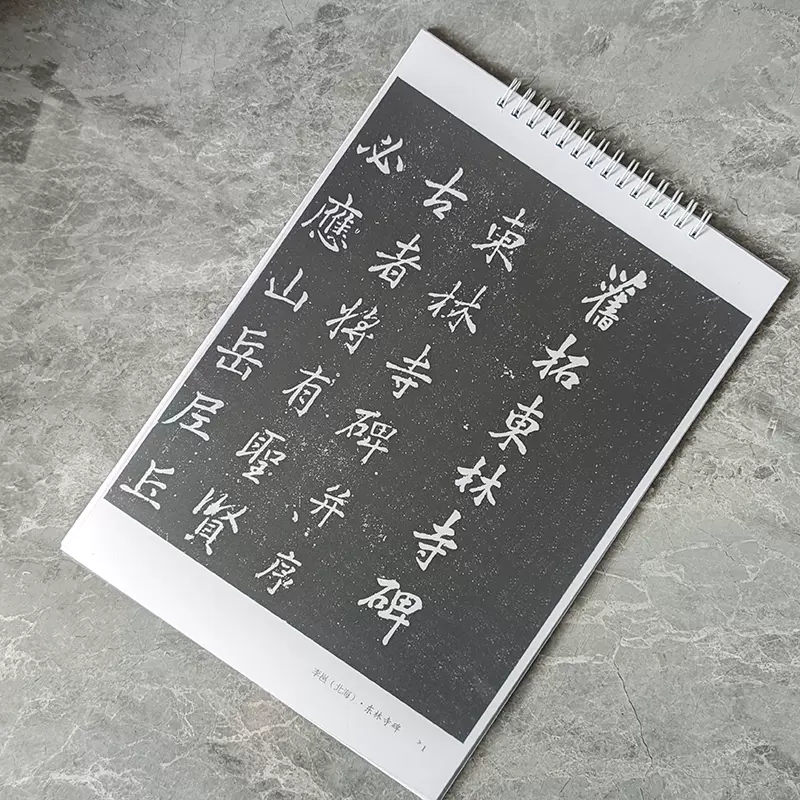 舊拓東林寺碑
東林寺碑并序
古者將有聖賢
必應山岳尼丘
李邕（北海）·东林寺碑
>1